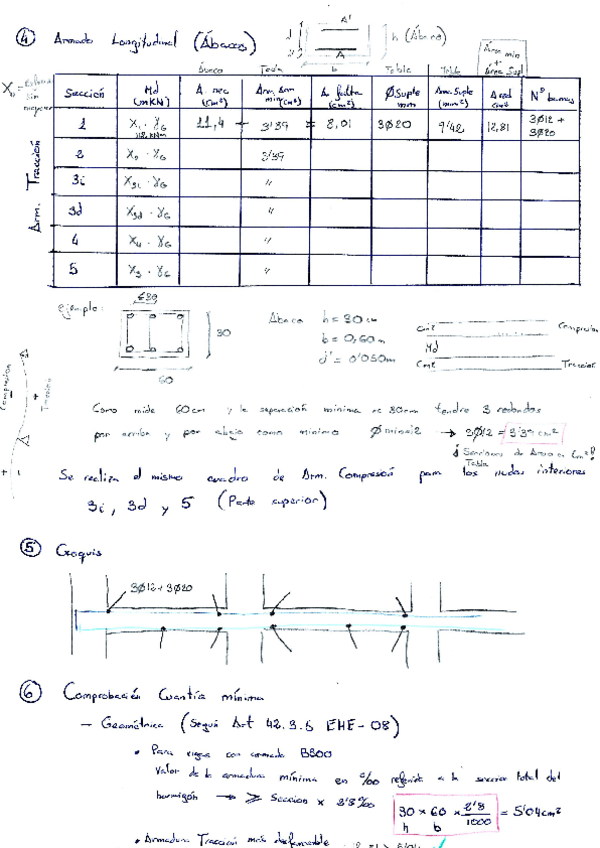 ④ Armado Longitudinal (Ábacos)
A'
d h (Ábaco)
A
b
Área min + Área Supl
Ábaco Tabla Tabla Tabla
Sección Md (mKN) A. nec (cm²) Arm. min (cm²) A. falta (cm²) ØSuple mm Arm. Suple (mm²) A red cm² Nº barras
1 X₁ · γG 11,4 - 3'39 = 8,01 3Ø20 9'42 12,81 3Ø12 + 3Ø20
2 X₂ · γG 3'39
3i X3i · γG "
3d X3d · γG "
4 X4 · γG "
5 X5 · γG "
Arm. Tracción
ejemplo:
30
60
Ábaco h = 30 cm
b = 0,60 m
d' = 0'050m
Md
Compresión
Tracción
Compresión
Tracción
Como mide 60cm y la separación mínima es 30cm tendré 3 redondos
por arriba y por abajo como mínimo Ømin12 → 3Ø12 = 3'39 cm²
Secciones de Área en cm²!
Tabla
Se realiza el mismo cuadro de Arm. Compresión para los nudos interiores
3i, 3d y 5 (Parte superior)
⑤ Croquis
3Ø12+3Ø20
⑥ Comprobación Cuantía mínima
- Geométrica (Según Art 42.3.5 EHE-08)
• Para vigas con armado B500
Valor de la armadura mínima en ‰ referida a la sección total del
hormigón → ≥ Sección x 2'8‰
30 x 60 x 2'8/1000 = 5'04cm²
h b
• Armadura Tracción más desfavorable